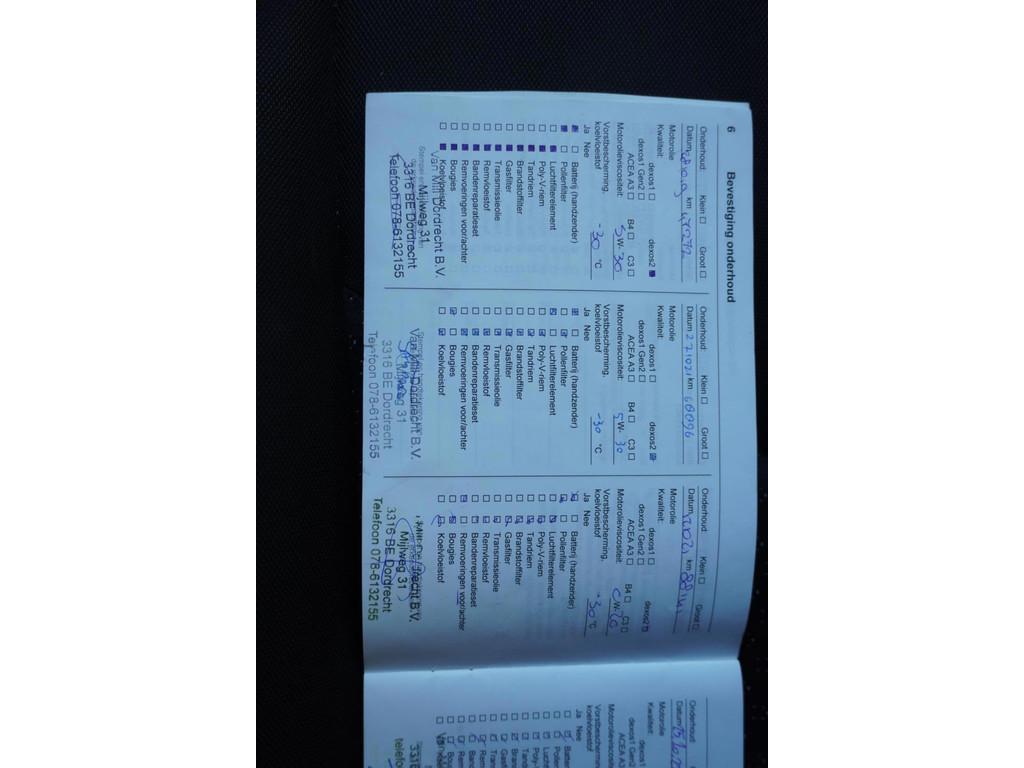 6 Bevestiging onderhoud
Onderhoud: Klein □ Groot □
Datum km
Motorolie
Kwaliteit: dexos1 □ dexos2 ■
dexos1 Gen2 □
ACEA A3 □ B4 □ C3 □
Motorolieviscositeit: 5 W- 30
Vorstbescherming,
koelvloeistof -30 °C
Ja Nee
Batterij (handzender)
Pollenfilter
Luchtfilterelement
Poly-V-riem
Tandriem
Brandstoffilter
Gasfilter
Transmissieolie
Remvloeistof
Bandenreparatieset
Remvoeringen voor/achter
Bougies
Koelvloeistof
Van Mill Dordrecht B.V.
Mijlweg 31
3316 BE Dordrecht
Telefoon 078-6132155
Onderhoud: Klein □ Groot □
Datum 271021 km 66096
Motorolie
Kwaliteit: dexos1 □ dexos2
dexos1 Gen2 □
ACEA A3 □ B4 □ C3 □
Motorolieviscositeit: 5 W- 30
Vorstbescherming,
koelvloeistof -30 °C
Ja Nee
Batterij (handzender)
Pollenfilter
Luchtfilterelement
Poly-V-riem
Tandriem
Brandstoffilter
Gasfilter
Transmissieolie
Remvloeistof
Bandenreparatieset
Remvoeringen voor/achter
Bougies
Koelvloeistof
Van Mill Dordrecht B.V.
Mijlweg 31
3316 BE Dordrecht
Telefoon 078-6132155
Onderhoud: Klein □ Groot □
Datum km
Motorolie
Kwaliteit: dexos1 □ dexos2
dexos1 Gen2 □
ACEA A3 □ B4 □ C3 □
Motorolieviscositeit: W-
Vorstbescherming,
koelvloeistof -30 °C
Ja Nee
Batterij (handzender)
Pollenfilter
Luchtfilterelement
Poly-V-riem
Tandriem
Brandstoffilter
Gasfilter
Transmissieolie
Remvloeistof
Bandenreparatieset
Remvoeringen voor/achter
Bougies
Koelvloeistof
Mill Dordrecht B.V.
Mijlweg 31
3316 BE Dordrecht
Telefoon 078-6132155
Onderhoud:
Datum
Motorolie
Kwaliteit: dexos1
dexos1 Gen2
ACEA A
Motorolieviscos
Vorstbescherm
koelvloeistof
Ja Nee
Batter
Pollen
Luch
Poly-
Tand
Bran
Gas
Tran
Rem
Ban
Re
Bou
Ko
3316
telefo